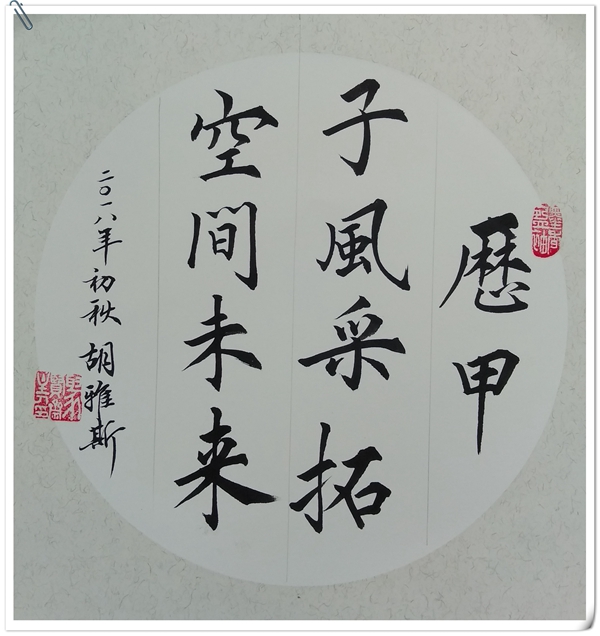 歷甲
子風采拓
空間未来
二〇一八年初秋 胡雅斯